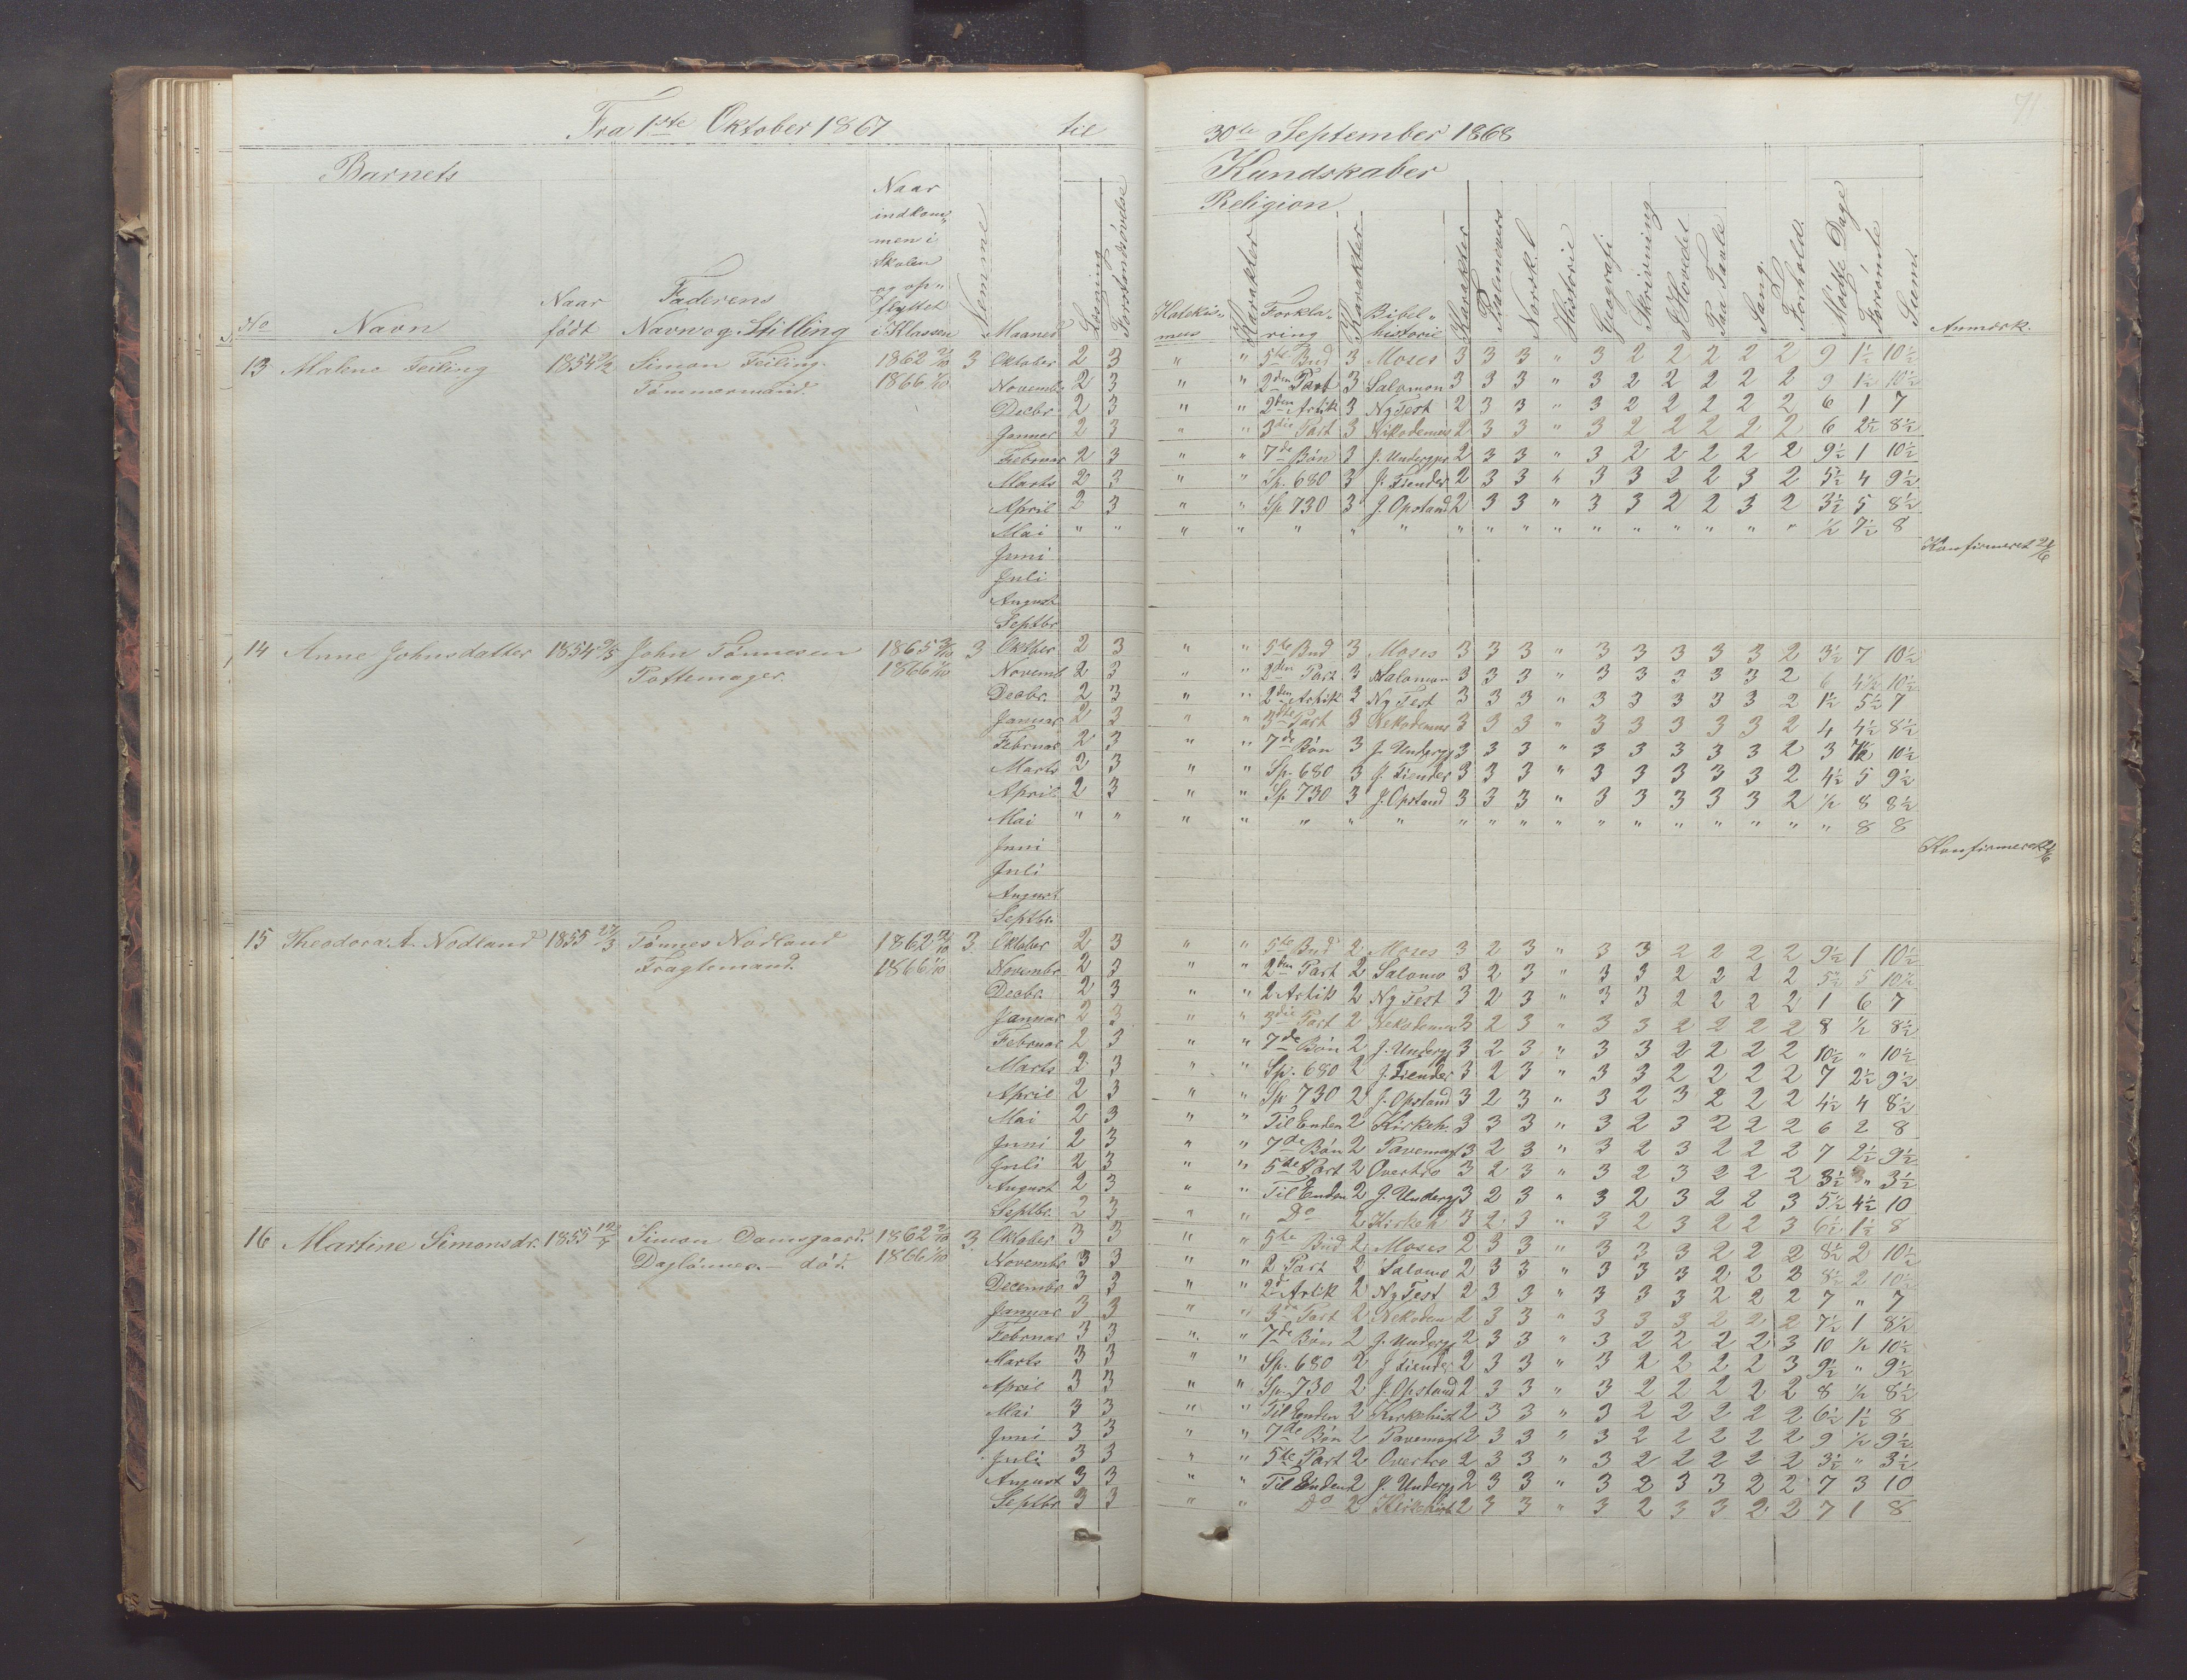 71
Fra 1ste Oktober 1867 til 30te September 1868
Barnets Kundskaber
Religion
No Navn Naar født Faderens Navn og Stilling Naar indkom„ men i Skolen og op„ flyttet i Klassen Nemme Maaned Læsning Forstandsøvelse Katekis„ mus Karakter Forkla„ ring Karakter Bibel„ historie Karakter Psalmevers Norsk Historie Geografi Skrivning I Hovedet Paa Tavle Sang Forhold Mødte Dage Forsømte Sum Anmærk.
13 Malene Feiling 1854 Simon Feiling 1862 2/10 3 Oktober 2 3 " " 5te Bud 3 Moses 3 3 3 " 3 2 2 2 2 2 9 1½ 10½
Tømmermand. 1866 1/10 Novembr 2 3 " " 2den Part 3 Salomon 3 3 3 " 3 2 2 2 2 2 9 1½ 10½
Decbr 2 3 " " 2den Artik 3 Ny Test 2 3 3 " 3 2 2 2 2 2 6 1 7
Januar 2 3 " " 3die Part 3 Nikodemus 2 3 3 " 3 2 2 2 2 2 6 2½ 8½
Februar 2 3 " " 7de Bøn 3 J. Undergjr 2 3 3 " 3 2 2 2 2 2 9½ 1 10½
Marts 2 3 " " Sp. 680 3 J. Fiender 2 3 3 " 3 3 2 2 3 2 5½ 4 9½
April 2 3 " " Sp 730 3 J. Opstand 2 3 3 " 3 3 2 2 3 2 3½ 5 8½
Mai " " " " " " " " " " " " " " " " " ½ 7½ 8
Juni Konfirmeret
Juli
August
Septbr
14 Anne Johnsdatter 1854 9/5 John Tønnesen 1865 3 Oktber 2 3 " " 5te Bud 3 Moses 3 3 3 " 3 3 3 3 3 2 3½ 7 10½
Pottemager. 1866 1/10 Novemb 2 3 " " 2den Part 3 Salomon 3 3 3 " 3 3 3 3 3 2 6 4½ 10½
Decbr. 2 3 " " 2den Artik 3 Ny Test 3 3 3 " 3 3 3 3 3 2 1½ 5½ 7
Januar 2 3 " " 3die Part 3 Nekodemus 3 3 3 " 3 3 3 3 3 2 4 4½ 8½
Februar 2 3 " " 7de Bøn 3 J. Undergj 3 3 3 " 3 3 3 3 3 2 3 7½ 10½
Marts 2 3 " " Sp. 680 3 J. Fiender 3 3 3 " 3 3 3 3 3 2 4½ 5 9½
April 2 3 " " Sp 730 3 J. Opstand 3 3 3 " 3 3 3 3 3 2 ½ 8 8½
Mai " " " " " " " " " " " " " " " " " " 8 8
Juni Konfirmeret
Juli
August
Septbr.
15 Theodora A. Nodland 1855 27/3 Tønnes Nodland 1862 2/10 3. Oktober 2 3 " " 5te Bud 2 Moses 3 2 3 " 3 3 2 2 2 2 9½ 1 10½
Fragtemand. 1866 1/10 Novembr 2 3 " " 2den Part 2 Salomo 3 2 3 " 3 3 2 2 2 2 5½ 5 10½
Decbr. 2 3 " " 2 Artik 2 Ny Test 3 2 3 " 3 3 2 2 2 2 1 6 7
Januar 2 3 " " 3die Part 2 Nekodemu 3 2 3 " 3 3 2 2 2 2 8 ½ 8½
Februar 2 3 " " 7de Bøn 2 J. Undergj 3 2 3 " 3 3 2 2 2 2 10½ " 10½
Marts 2 3 " " Sp. 680 2 J. Fiender 3 2 3 " 3 3 2 2 2 2 7 2½ 9½
April 2 3 " " Sp 730 2 J. Opstand 3 2 3 " 3 2 3 2 2 2 4½ 4 8½
Mai 2 3 " " Til Enden 2 Kirkeh. 3 3 3 " 3 2 3 2 2 2 6 2 8
Juni 2 3 " " 7de Bøn 2 Pavemagt 3 2 3 " 3 2 3 2 2 2 7 2½ 9½
Juli 2 3 " " 5te Part 2 Overtro 3 2 3 " 3 2 3 2 2 2 3½ " 3½
August 2 3 " " Til Enden 2 J. Undergj 3 2 3 " 3 2 3 2 2 3 5½ 4½ 10
Septbr. 2 3 " " Do 2 Kirkeh 3 2 3 " 3 2 3 2 2 3 6½ 1½ 8
16 Martine Simonsdr. 1855 Simon Damsgaard. 1862 2/10 3. Oktober 3 3 " " 5te Bud 2 Moses 2 3 3 " 3 3 3 2 2 2 8½ 2 10½
Daglønner. – død. 1866 1/10 Novembr 3 3 " " 2 Part 2 Salomo 2 3 3 " 3 3 3 2 2 2 8½ 2 10½
Decembr 3 3 " " 2d Artik 2 Ny Test 2 3 3 " 3 3 3 2 2 2 7 " 7
Januar 3 3 " " 3die Part 2 Nekodem 2 3 3 " 3 3 3 2 2 2 7½ 1 8½
Februar 3 3 " " 7de Bøn 2 J. Undergj 2 3 3 " 3 2 2 2 2 3 10 ½ 10½
Marts 3 3 " " Sp. 680 2 J Fiender 2 3 3 " 3 2 2 2 2 3 9½ " 9½
April 3 3 " " Sp. 730 2 J. Opstand 2 3 3 " 3 2 2 2 2 2 8 ½ 8½
Mai 3 3 " " Til Enden 2 Kirkehist 2 3 3 " 3 2 2 2 2 2 6½ 1½ 8
Juni 3 3 " " 7de Bøn 2 Pavemagt 2 3 3 " 3 2 2 2 2 2 9 ½ 9½
Juli 3 3 " " 5te Part 2 Overtro 2 3 3 " 3 2 2 2 2 2 3½ " 3½
August 3 3 " " Til Enden 2 J. Undergj 2 3 3 " 3 2 3 3 2 2 7 3 10
Septbr 3 3 " " Do 2 Kirkehist 2 3 3 " 3 2 3 3 2 2 7 1 8